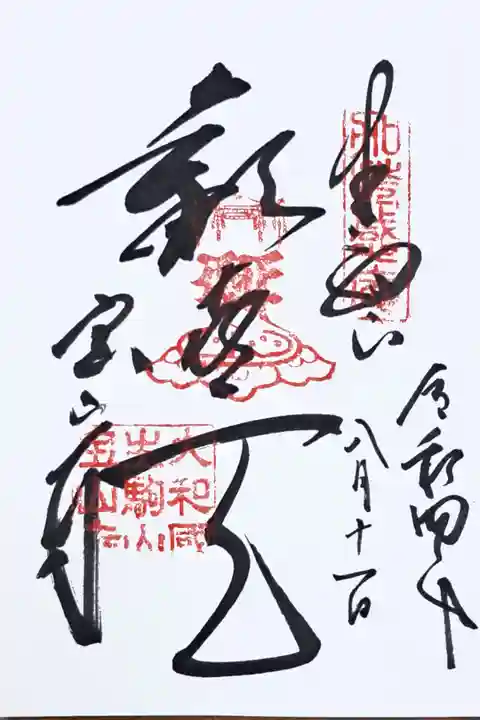 令和四年
八月十一日
奉拝
歡喜天
宝山寺
大和國
生駒山
宝山寺